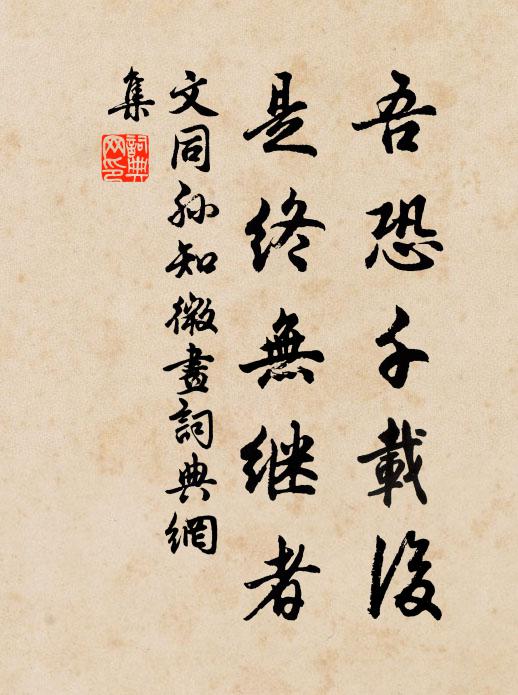 吾恐千載後
是終無继者
文同孙知微畫詞典網
集
詞典網印